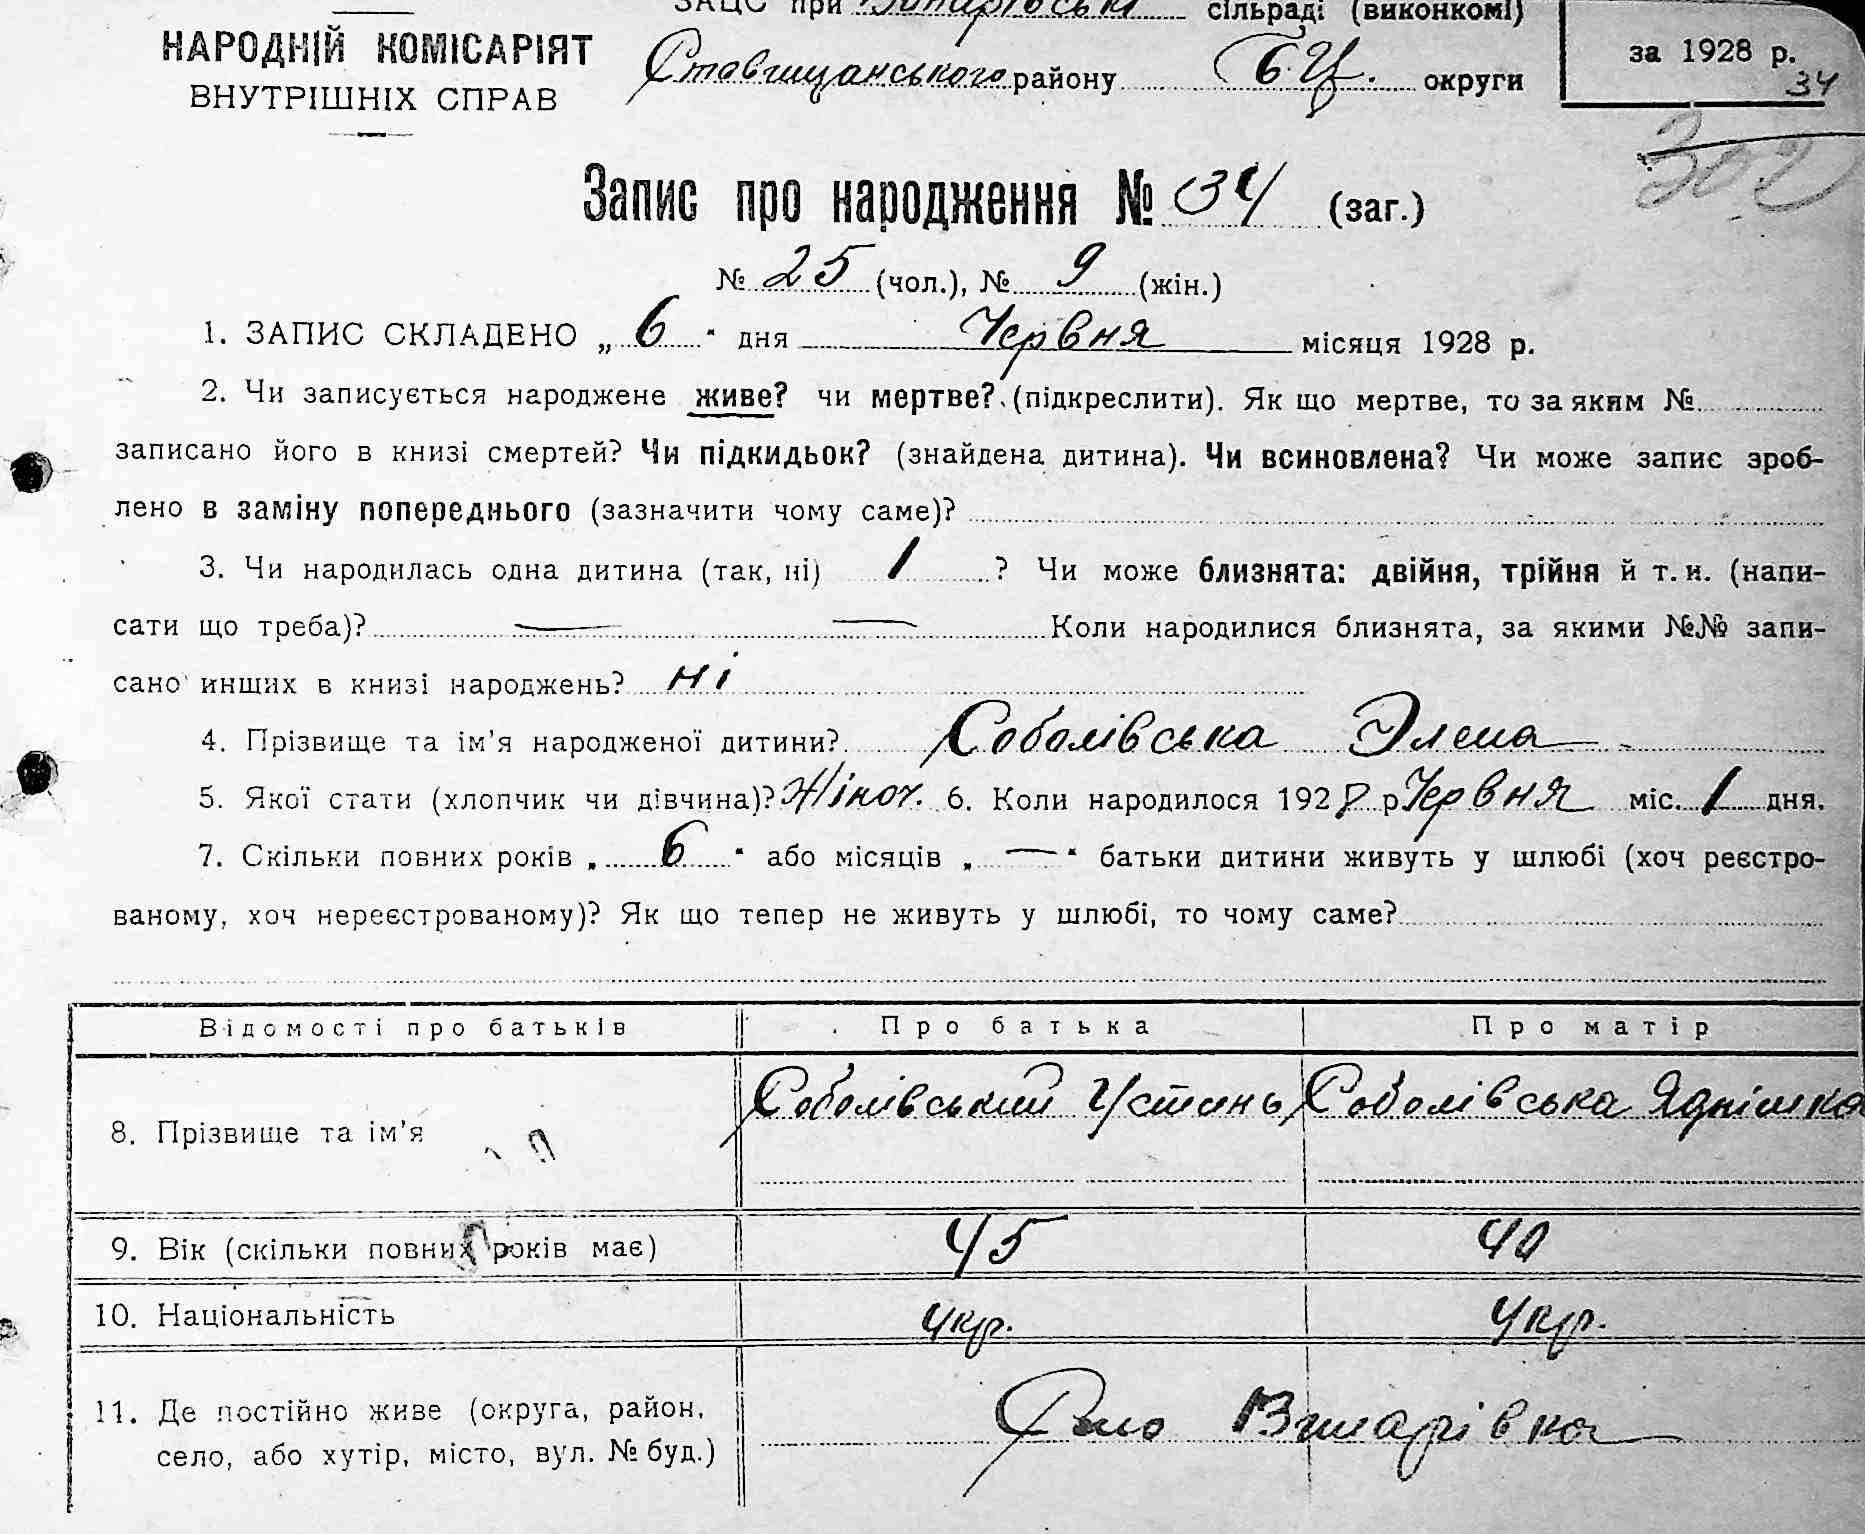 ЗАЦС при Винарівській сільраді (виконкомі)
НАРОДНІЙ КОМІСАРІЯТ
ВНУТРІШНІХ СПРАВ
Ставищанського району Б.Ц. округи
за 1928 р.
34
302
Запис про народження № 34 (заг.)
№ 25 (чол.), № 9 (жін.)
1. ЗАПИС СКЛАДЕНО „ 6 “ дня Червня місяця 1928 р.
2. Чи записується народжене живе? чи мертве? (підкреслити). Як що мертве, то за яким №
записано його в книзі смертей? Чи підкидьок? (знайдена дитина). Чи всиновлена? Чи може запис зроб-
лено в заміну попереднього (зазначити чому саме)?
3. Чи народилась одна дитина (так, ні) 1 ? Чи може близнята: двійня, трійня й т. и. (напи-
сати що треба)? — — Коли народилися близнята, за якими №№ запи-
сано инших в книзі народжень? ні
4. Прізвище та ім’я народженої дитини? Соболівська Элена
5. Якої стати (хлопчик чи дівчина)? Жіноч. 6. Коли народилося 1928 р. Червня міс. 1 дня.
7. Скільки повних років „ 6 “ або місяців „ — “ батьки дитини живуть у шлюбі (хоч реєстро-
ваному, хоч нереєстрованому)? Як що тепер не живуть у шлюбі, то чому саме?
Відомості про батьків Про батька Про матір
8. Прізвище та ім’я Соболівський Устинь Соболівська Ядвішка
9. Вік (скільки повних років має) 45 40
10. Національність Укр. Укр.
11. Де постійно живе (округа, район,
село, або хутір, місто, вул. № буд.) Село Винарівка